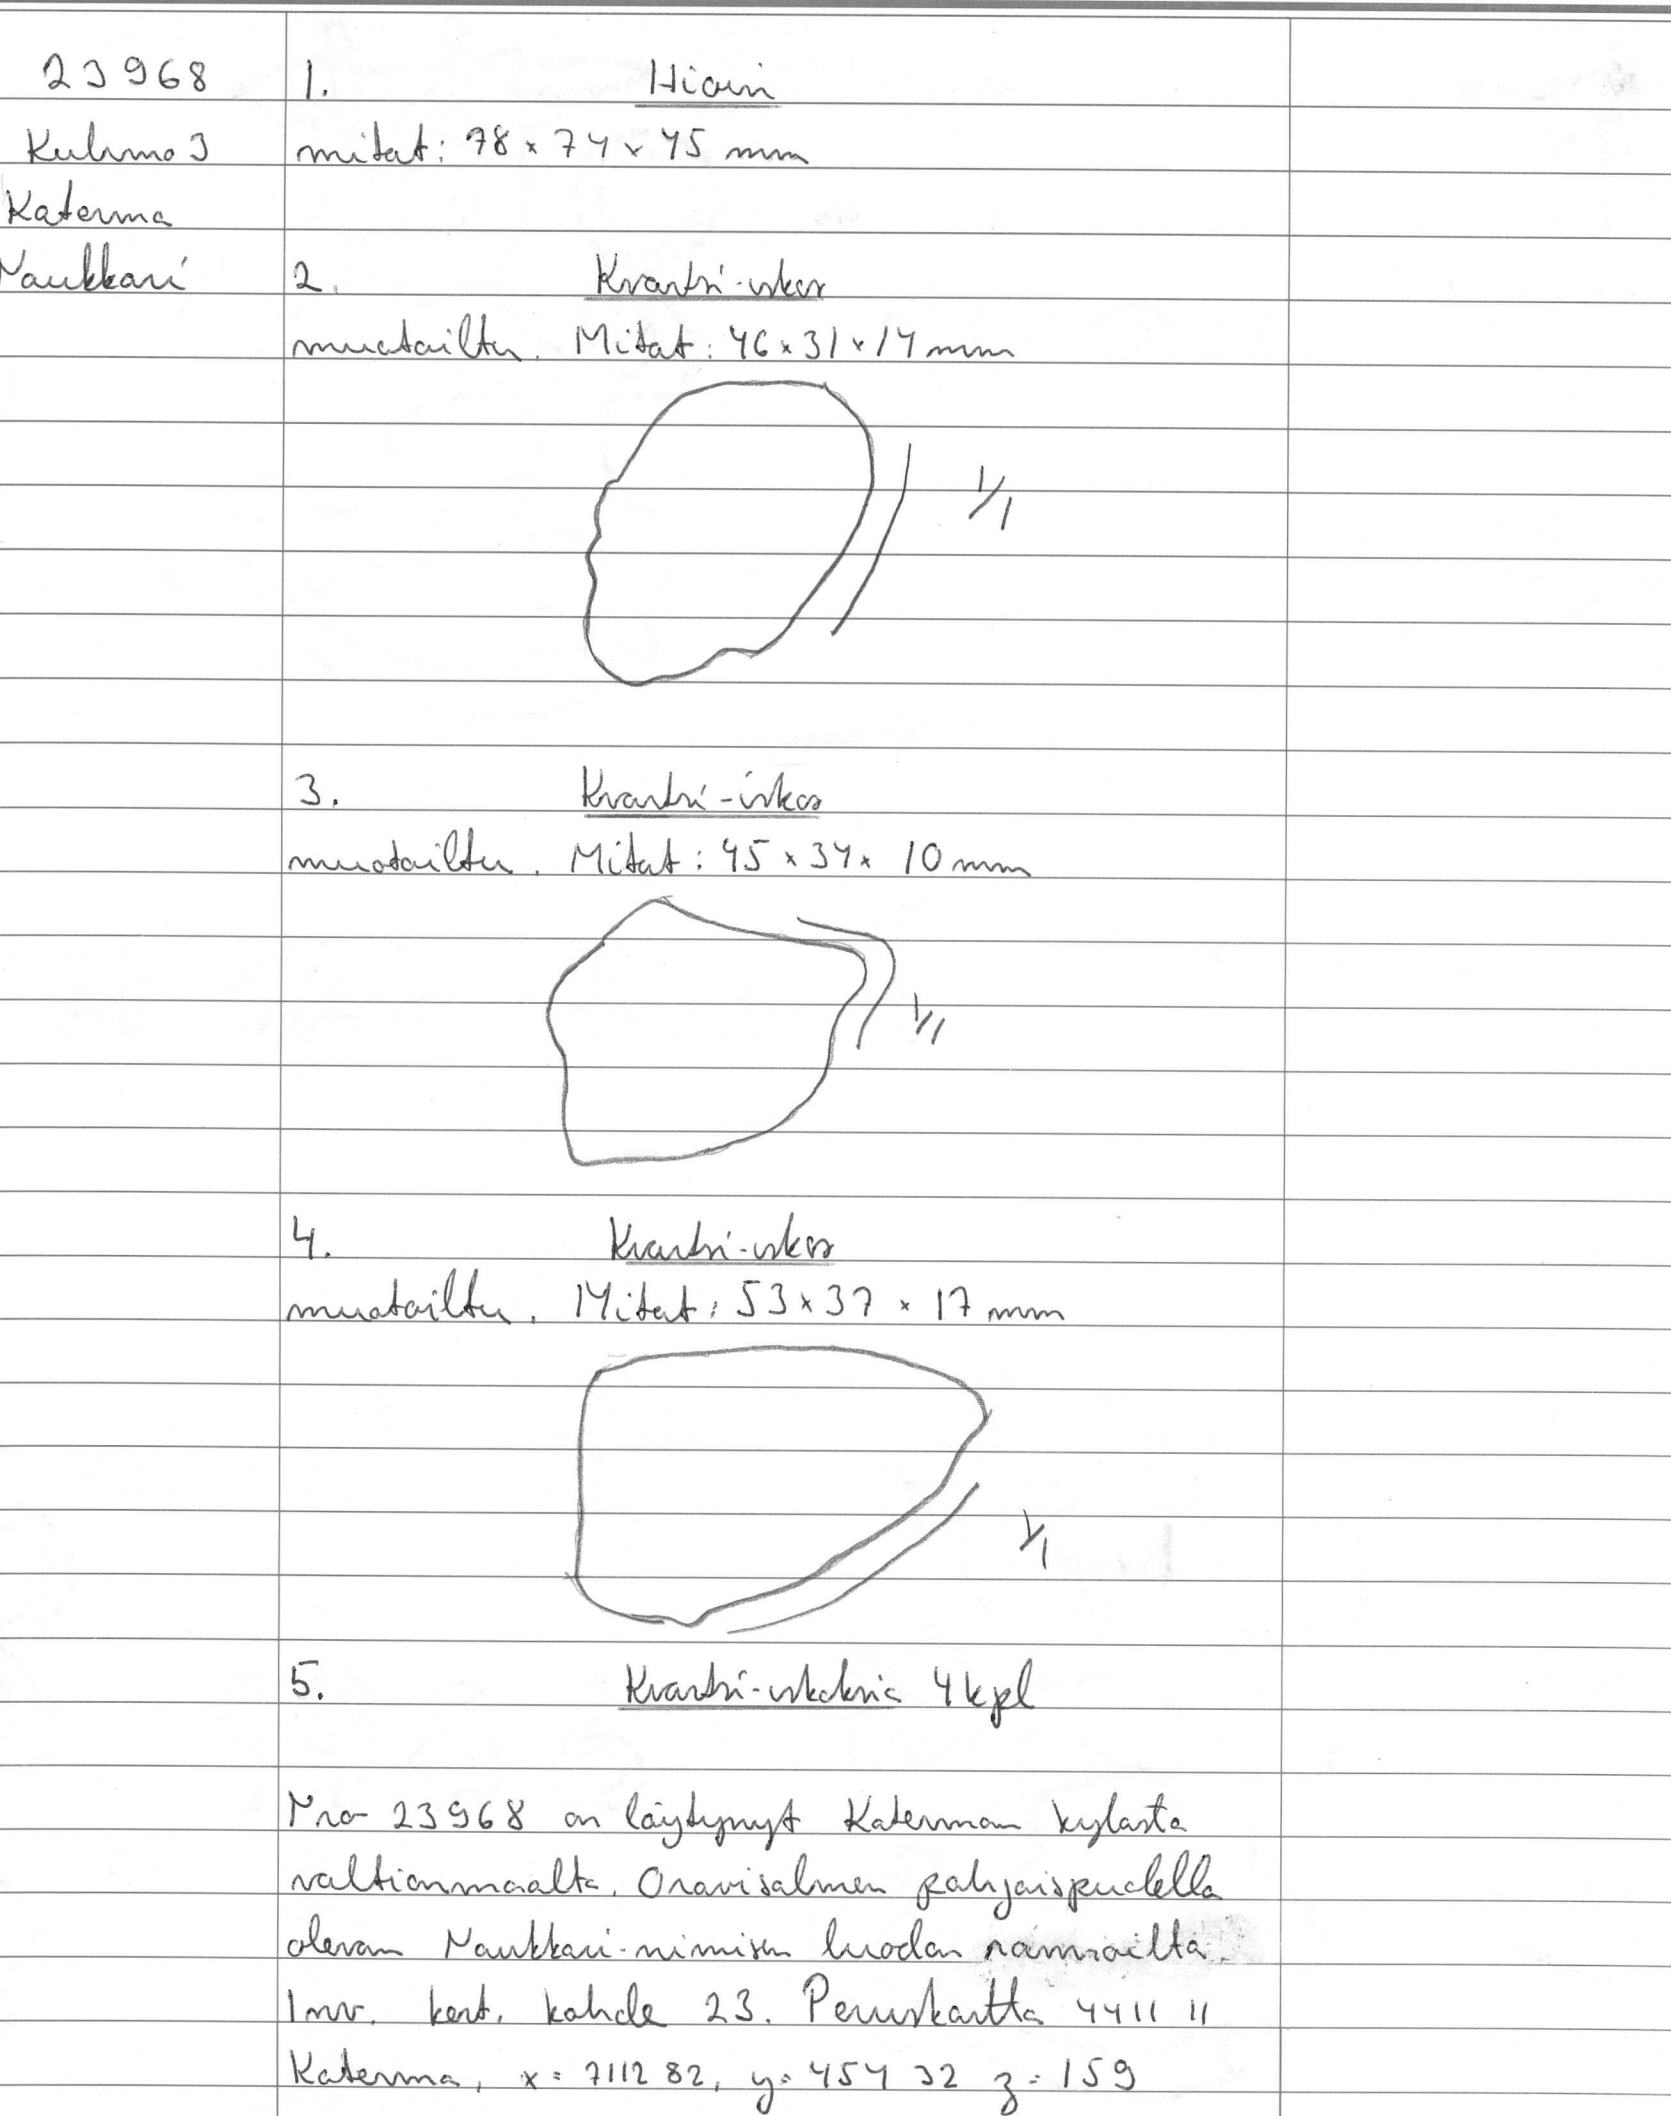 23968 1. Hioin
Kuhmo 3 mitat: 78 x 74 x 45 mm
Katerma
Naukkari 2. Kvartsi-iskos
muotoiltu. Mitat: 46 x 31 x 14 mm
1/1
3. Kvartsi-iskos
muotoiltu. Mitat: 45 x 34 x 10 mm
1/1
4. Kvartsi-iskos
muotoiltu. Mitat: 53 x 37 x 17 mm
1/1
5. Kvartsi-iskoksia 4 kpl
Nro 23968 on löytynyt Katerman kylästä
valtionmaalta, Oravisalmen pohjoispuolella
olevan Naukkari-nimisen luodon
Inv. kert. kohde 23. Peruskartta 4411 11
Katerma, x= 7112 82, y= 454 32 z= 159